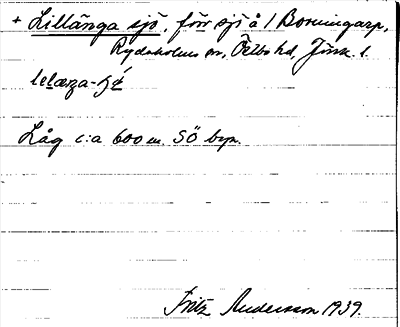 + Lillänga sjö, förr sjö å 1 Bosningarp,
Rydaholms sn, Östbo hd, Jönk. l.
Låg c:a 600 m. SÖ byn.
Fritz Andersson 1939.